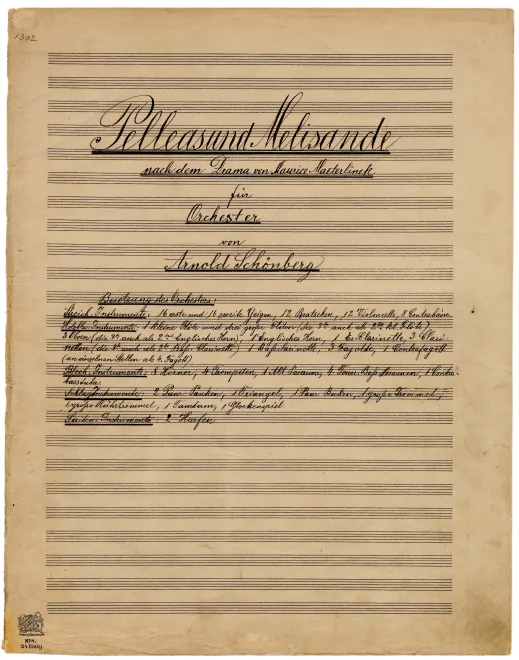 1302
Pelleas und Melisande
nach dem Drama von Maurice Maeterlinck
für
Orchester
von
Arnold Schönberg
Besetzung des Orchesters:
Streich-Instrumente: 16 erste und 16 zweite Geigen, 12 Bratschen, 12 Violoncelle, 8 Contrabässe
Holzbl. Instrumente: 1 kleine Flöte und drei große Flöten (die 3te auch als 2te kl. Flöte)
3 Oboen (die 3te auch als 2tes Englisches Horn), 1 Englisches Horn, 1 Es Clarinette, 3 Clari-
netten (die 3te auch als 2te Bassclarinette), 1 Bassclarinette, 3 Fagotte, 1 Contrafagott
(an einzelnen Stellen als 4. Fagott)
Blech-Instrumente: 8 Hörner, 4 Trompeten, 1 Alt Posaune, 4 Tenor-Bass Posaunen, 1 Contra-
basstuba
Schlaginstrumente: 2 Paar Pauken, 1 Triangel, 1 Paar Becken, 1 große Trommel,
1 große Rührtrommel, 1 Tamtam, 1 Glockenspiel
Saiten-Instrumente: 2 Harfen